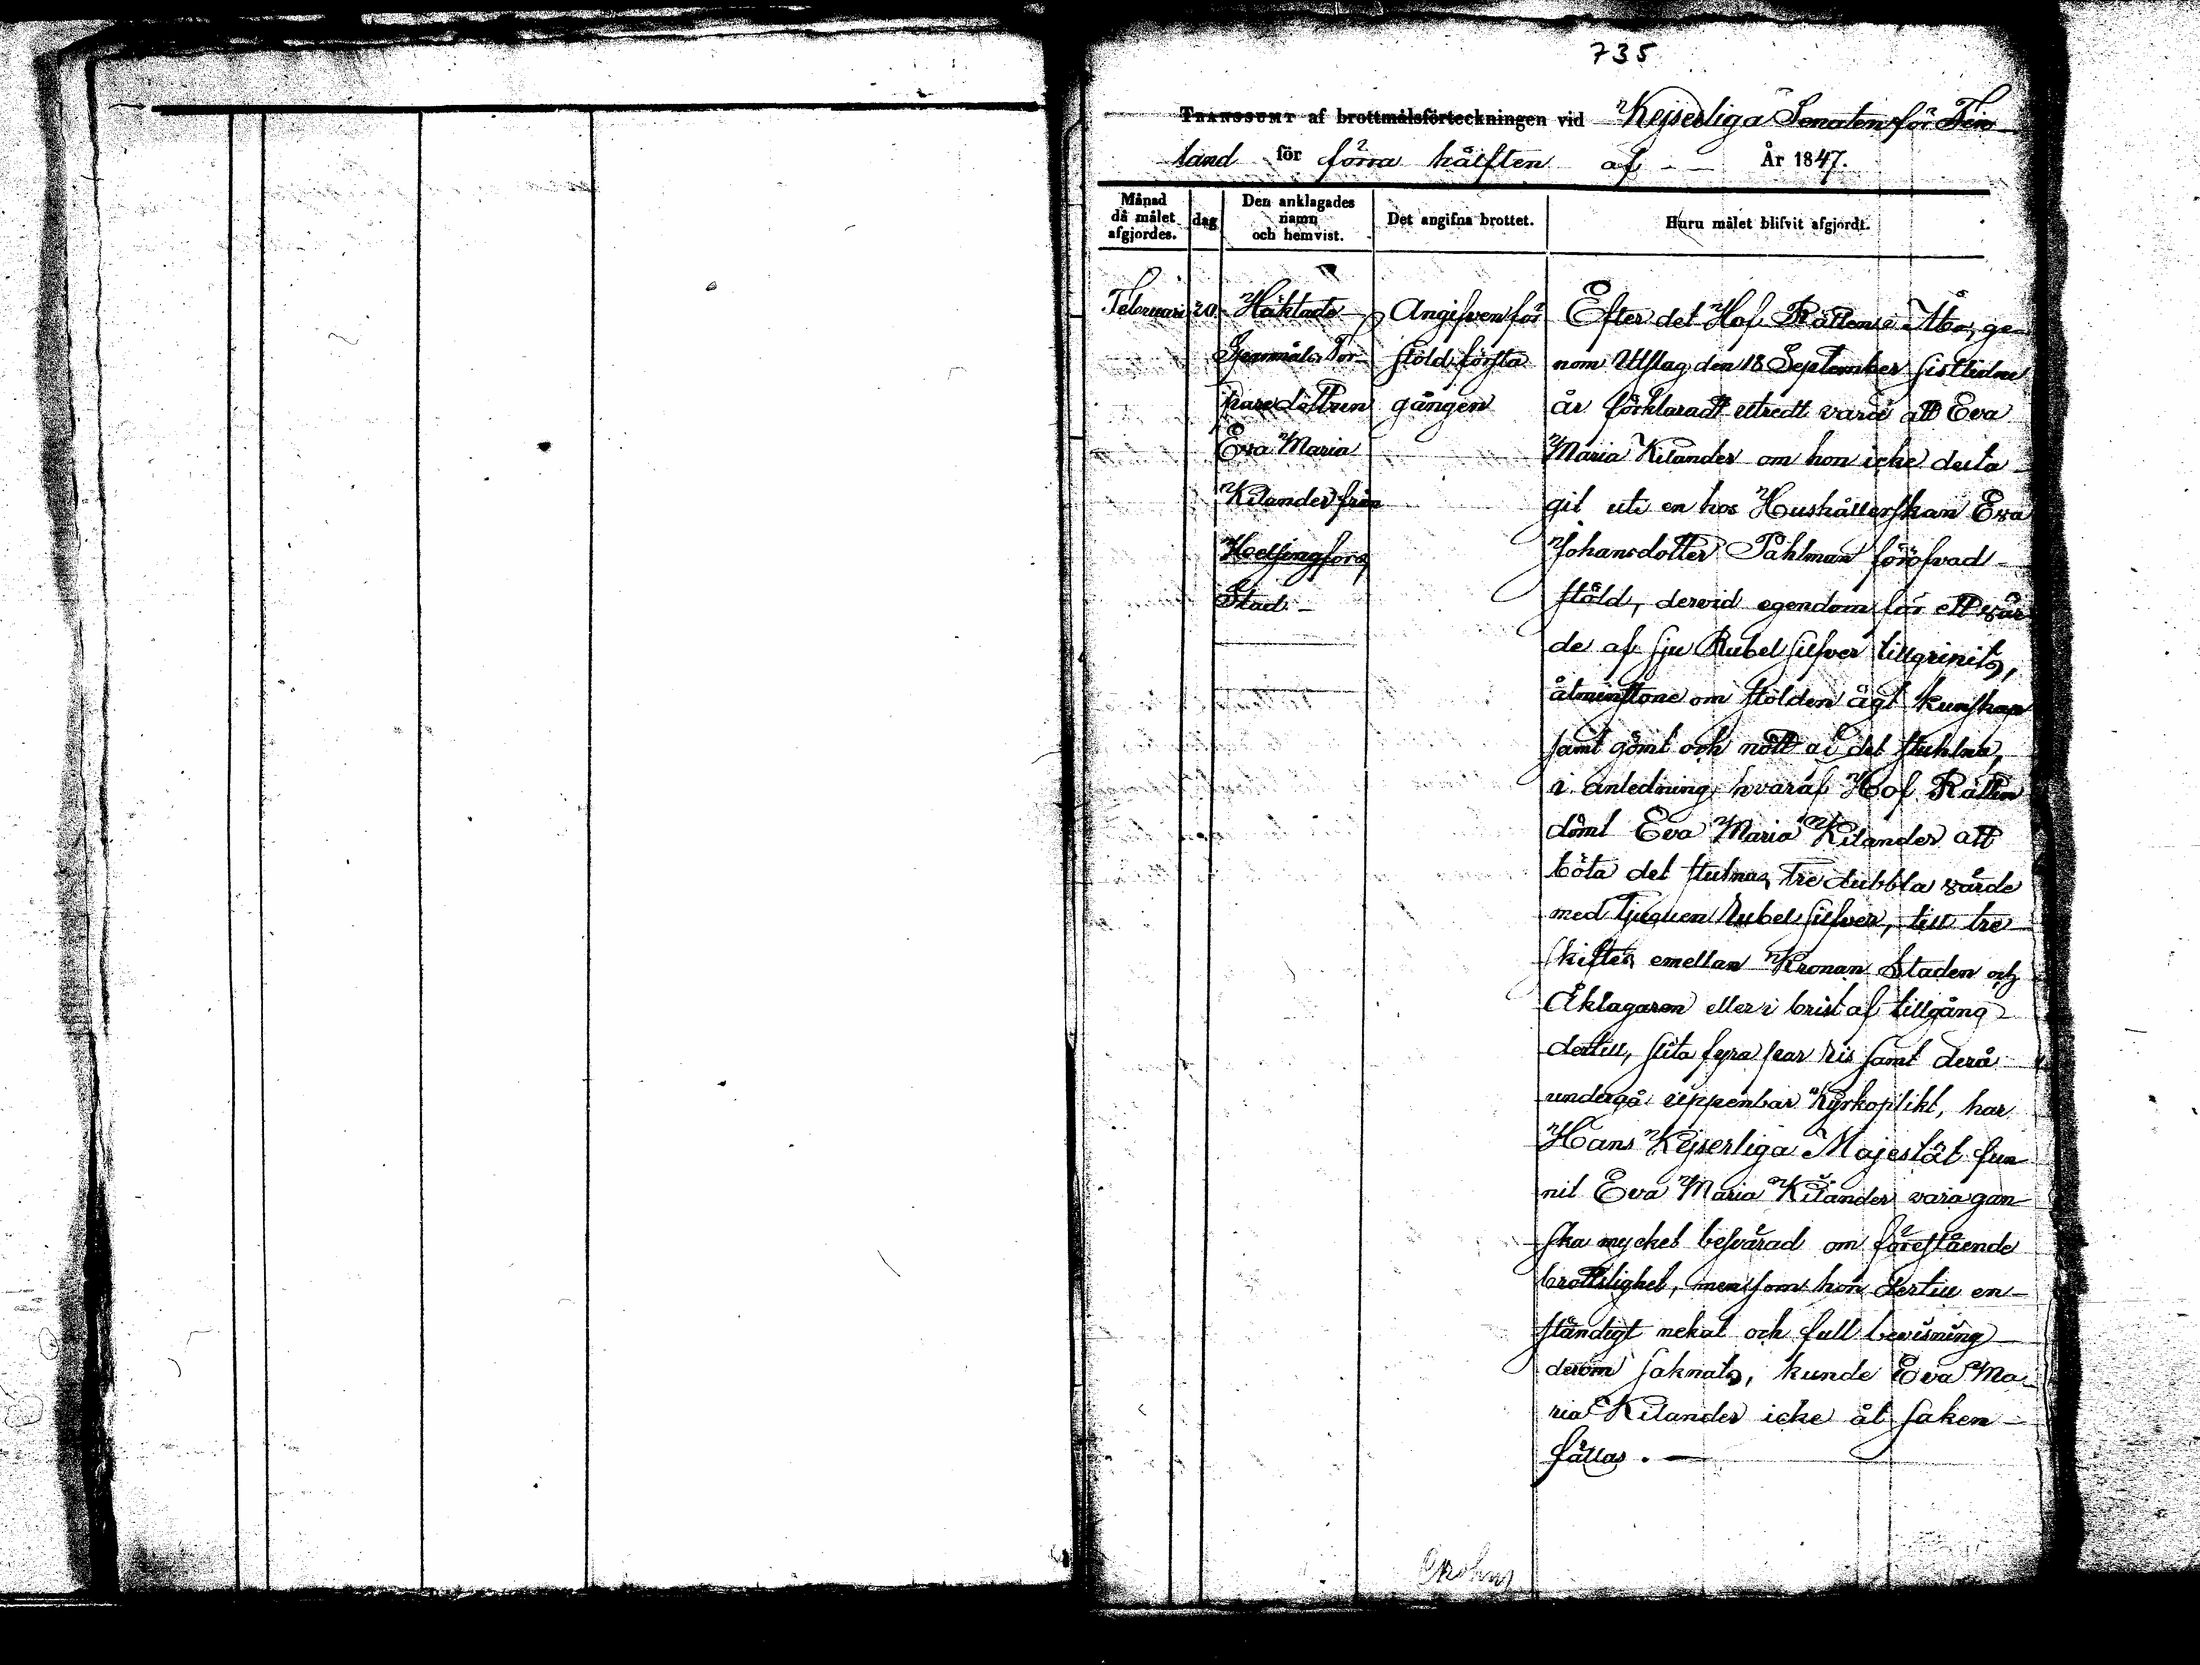 735
TRANSSUMT af brottmålsförteckningen vid Kejserliga Senaten för Fin
land för förra hälften af - - År 1847.
Månad då målet afgjordes.
dag
Den anklagades namn och hemvist.
Det angifna brottet.
Huru målet blifvit afgjordt.
Februari 20.
Häktade
Spannmåls Tor-
pare dottren
Eva Maria
Kilander från
Helsingfors
Stad -
Angifven för
stöld första
gången
Efter det Hof Rätten i Åbo, ge-
nom Utslag den 18 September sistlidne
år förklaradt utredt vara att Eva
Maria Kilander om hon icke delta
git uti en hos Hushållerskan Eva
Johansdotter Påhlman föröfvad
stöld, dervid egendom för ett vär
de af sju Rubel silfver tillgripits,
åtminstone om stölden ägt kunskap
samt gömt och nött af det stuhlna,
i anledning hvaraf Hof Rätten
dömt Eva Maria Kilander att
böta det stulnas tredubbla värde
med tjuguen Rubel silfver, till tre-
skiftes emellan Kronan Staden och
Åklagaren eller i brist af tillgång
dertill, slita fyra par ris samt derå
undergå uppenbar Kyrkoplikt, har
Hans Kejserliga Majestät fun
nit Eva Maria Kilander vara gan
ska mycket besvärad om förestående
brottslighet, men som hon dertill en-
ständigt nekat och full bevisning
derom saknats, kunde Eva Ma-
ria Kilander icke åt saken
fällas. -